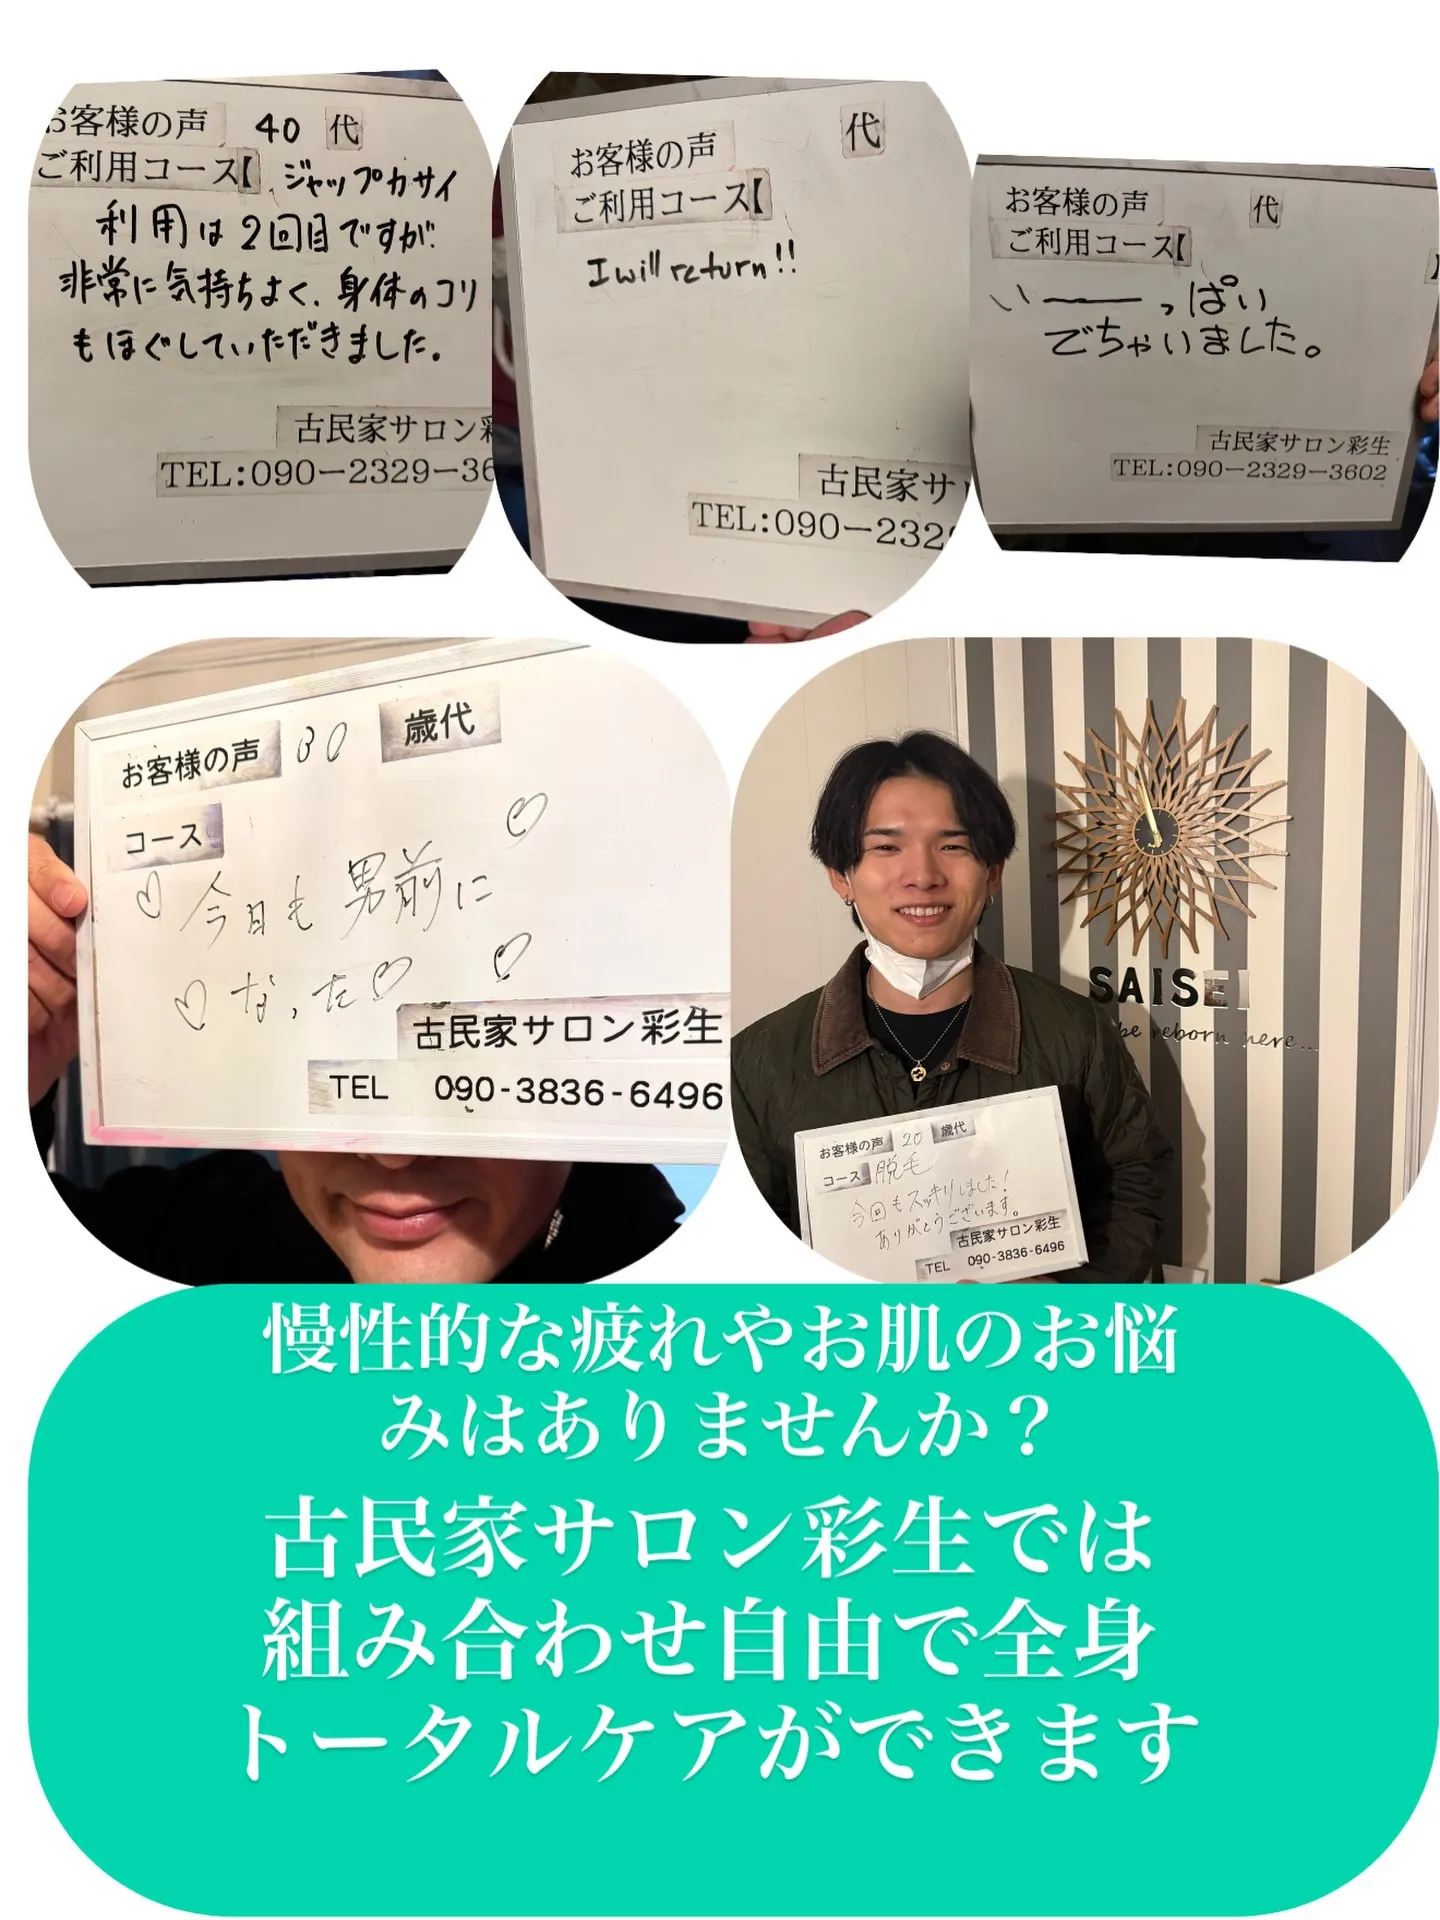 お客様の声 40 代
ご利用コース【 ジャップカサイ
利用は2回目ですが
非常に気持ちよく、身体のコリ
もほぐしていただきました。
古民家サロン彩
TEL:090ー2329ー36
お客様の声 代
ご利用コース【
I will return!!
古民家サ
TEL:090ー232
お客様の声 代
ご利用コース【
】
いーーっぱい
でちゃいました。
古民家サロン彩生
TEL:090ー2329ー3602
お客様の声 30 歳代
コース
今日も男前に
なった
古民家サロン彩生
TEL 090-3836-6496
SAISEI
be reborn here...
お客様の声 20 歳代
コース 脱毛
今回もスッキリしました!
ありがとうございます。
古民家サロン彩生
TEL 090-3836-6496
慢性的な疲れやお肌のお悩
みはありませんか？
古民家サロン彩生では
組み合わせ自由で全身
トータルケアができます